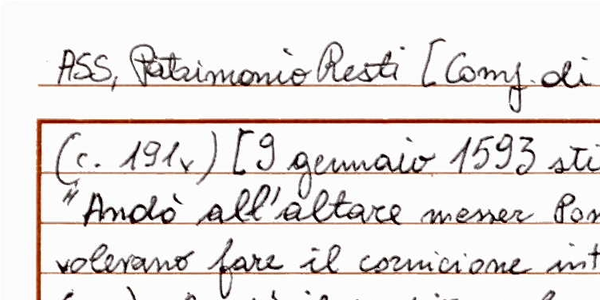 ASS, Patrimonio Resti [Comf. di
(c. 191v) [9 gennaio 1593 sti
"Andò all'altare messer Pom
volevano fare il cornicione int